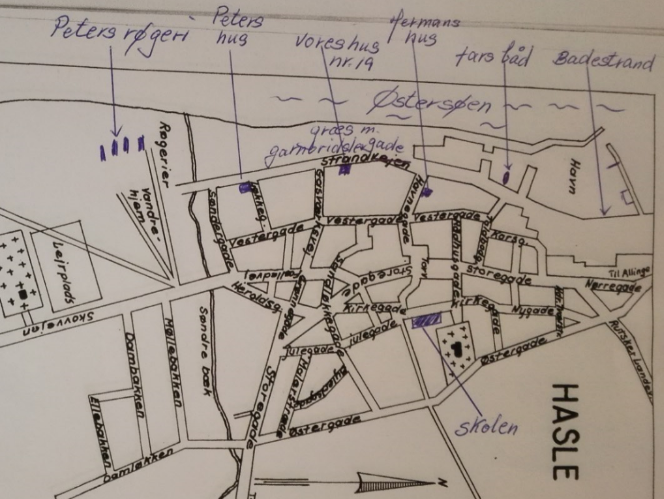 Peters røgeri
Peters
hus
vores hus
nr. 19
Hermans
hus
fars båd
Badestrand
Østersøen
græs m.
garnbridslergade
Strandvejen
Røgerier
Vandre-
hjem
Lejrplads
Skovvejen
Søndergade
Bækkeg.
Vestergade
Gasværksvej
Havnegade
Vestergade
Havn
Karsg.
Storegade
Til Allinge
Nørregade
Heroldsg.
Grønnegade
Storegade
Torv
Kirkegade
Kirkegade
Nygade
Julegade
Julegade
Østergade
Storegade
Malerstræde
Østergade
Søndre bæk
Møllebakken
Dambakken
Ellebakken
Damløkken
skolen
HASLE
N